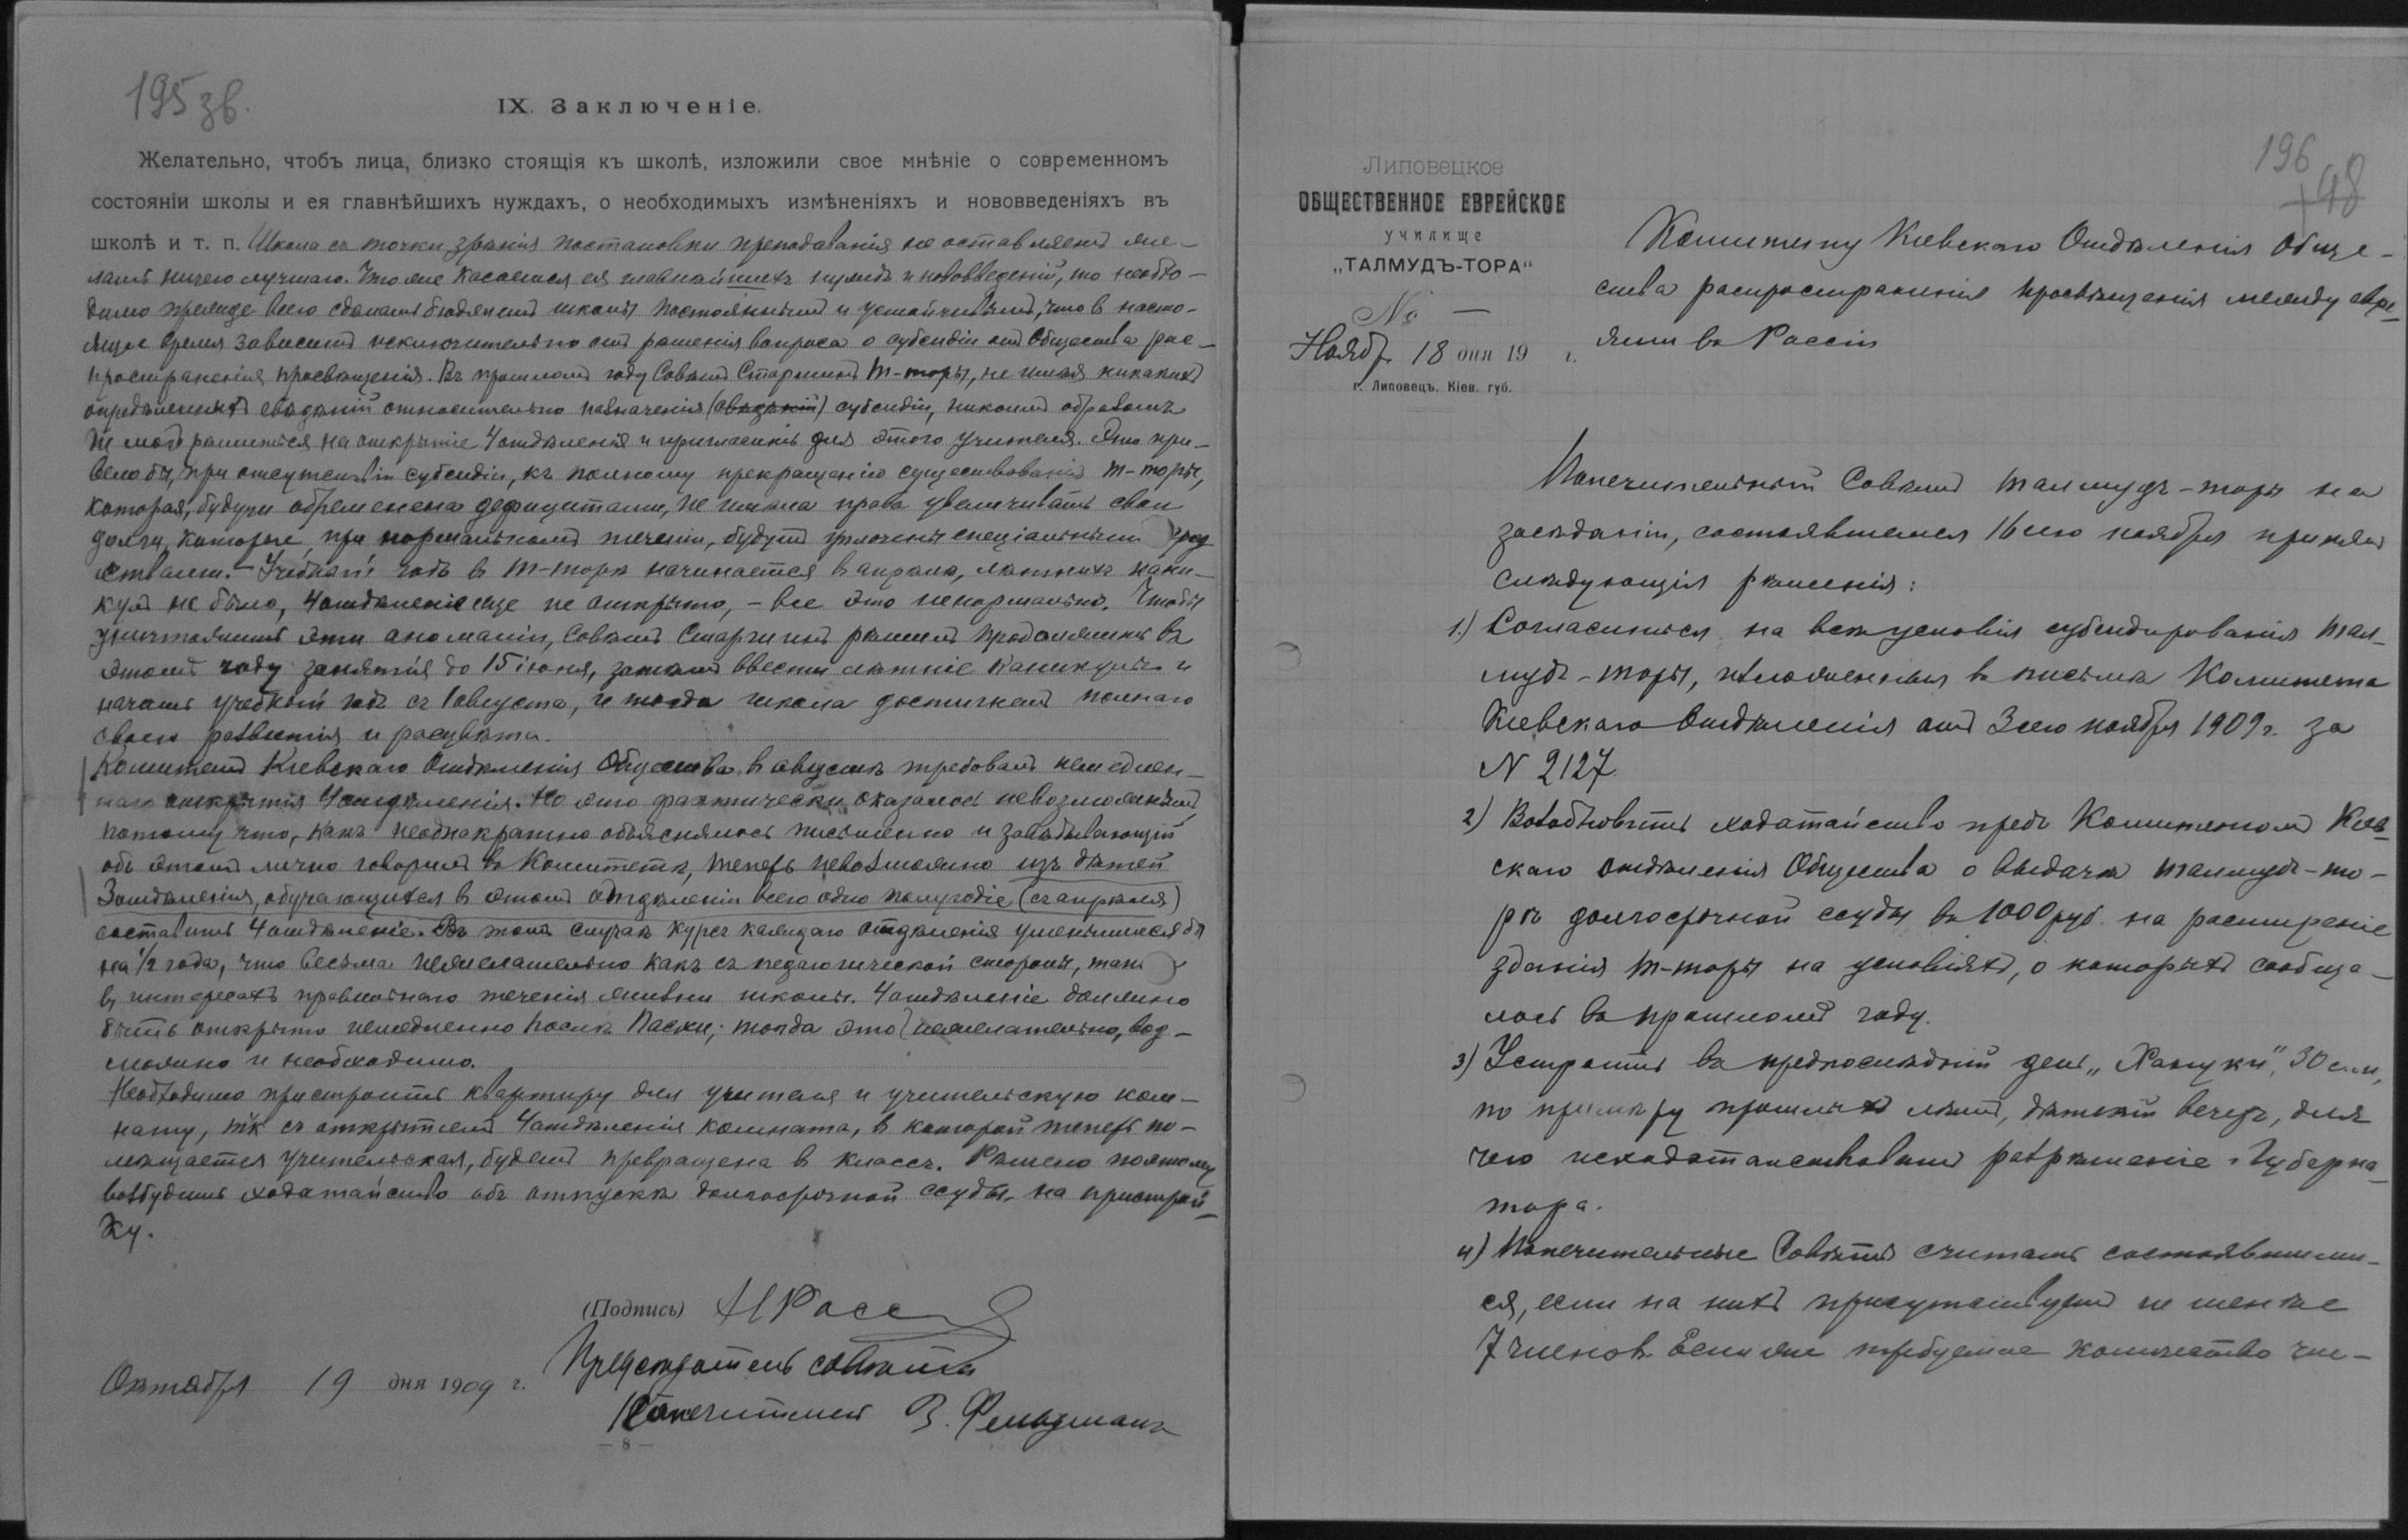 195 зв.
IX. Заключеніе.
Желательно, чтобъ лица, близко стоящія къ школѣ, изложили свое мнѣніе о современномъ
состояніи школы и ея главнѣйшихъ нуждахъ, о необходимыхъ измѣненіяхъ и нововведеніяхъ въ
школѣ и т. п. Школа съ точки зрѣнія постановки преподаванія не оставляетъ же-
лать ничего лучшаго. Что же касается ея главнѣйшихъ нуждъ и нововведеній, то необхо-
димо прежде всего сдѣлать бюджетъ школы постояннымъ и устойчивымъ, что в насто-
ящее время зависитъ исключительно отъ рѣшенія вопроса о субсидіи отъ Общества рас-
пространенія просвѣщенія. Въ прошломъ году Совѣтъ Старшинъ Т-торы, не имѣя никакихъ
опредѣленныхъ свѣдѣній относительно назначенія (свѣдѣній) субсидіи, никоимъ образомъ
не могъ рѣшиться на открытіе 4 отдѣленія и приглашенія для этого учителя. Это при-
вело бы, при отсутствіи субсидіи, къ полному прекращенію существованія Т-торы,
которая, будучи обременена дефицитами, не имѣла права увеличивать свои
долги, которые, при нормальномъ теченіи, будутъ уплочены спеціальными сред
ствами. Учебный годъ в Т-торѣ начинается в апрѣлѣ, лѣтнихъ кани-
кулъ не было, 4 отдѣленіе еще не открыто, - все это ненормально. Чтобы
уничтожить эти аномаліи, Совѣтъ Старшинъ рѣшилъ продолжить въ
этомъ году занятія до 15 іюня, затѣмъ ввести лѣтніе каникулы и
начать учебный годъ съ 1 августа, и тогда школа достигнетъ полнаго
своего развитія и расцвѣта.
Комитетъ Кіевскаго Отдѣленія Общества в августѣ требовалъ немедлен-
наго открытія 4 отдѣленія. Но это фактически оказалось невозможнымъ,
потому что, какъ неоднократно объяснялось письменно и завѣдывающій
объ этомъ лично говорилъ въ Комитетѣ, теперь невозможно изъ дѣтей
3 отдѣленія, обучающихся в этомъ отдѣленіи всего одно полугодіе (съ апрѣля)
составить 4 отдѣленіе. Въ такъ случаѣ курсъ каждаго отдѣленія уменьшился бы
на 1/2 года, что весьма нежелательно какъ съ педагогической стороны, такъ
в интересахъ правильнаго теченія жизни школы. 4 отдѣленіе должно
быть открыто немедленно послѣ Пасхи; тогда это желательно, воз-
можно и необходимо.
Необходимо пристроить квартиру для учителя и учительскую ком-
нату, т.к. съ открытіемъ 4 отдѣленія комната, в которой теперь по-
мѣщается учительская, будетъ превращена в классъ. Рѣшено поэтому
возбудить ходатайство объ отпускѣ долгосрочной ссуды на пристрой-
ку.
(Подпись)
Предсѣдатель совѣта
Попечитель В. Фельдманъ
Октября 19 дня 1909 г.
— 8 —
196
48
Липовецкое
ОБЩЕСТВЕННОЕ ЕВРЕЙСКОЕ
училище
„ТАЛМУДЪ-ТОРА“
№ —
Ноябр. 18 дня 19 г.
г. Липовецъ. Кіев. губ.
Комитету Кіевскаго Отдѣленія Обще-
ства распространенія просвѣщенія между евре-
ями въ Россіи
Попечительный Совѣтъ талмудъ-торы на
засѣданіи, состоявшемся 16 сего ноября принялъ
слѣдующія рѣшенія:
1.) Согласиться на всѣ условія субсидированія тал-
мудъ-торы, изложенныя въ письмѣ Комитета
Кіевскаго Отдѣленія отъ 3 сего ноября 1909 г. за
N 2127.
2) Возобновить ходатайство предъ Комитетомъ Кіев-
скаго отдѣленія Общества о выдачѣ талмудъ-то-
рѣ долгосрочной ссуды въ 1000 руб. на расширеніе
зданія т-торы на условіяхъ, о которыхъ сообща-
лось въ прошломъ году.
3) Устроить въ предпослѣдній день „Хануки“, 30 с.м.,
по примѣру прошлыхъ лѣтъ, дѣтскій вечеръ, для
чего исходатайствовать разрѣшеніе г. Губерна-
тора.
4) Попечительные Совѣты считать состоявшими-
ся, если на нихъ присутствуетъ не менѣе
7 членов. Если же требуемое количество чле-